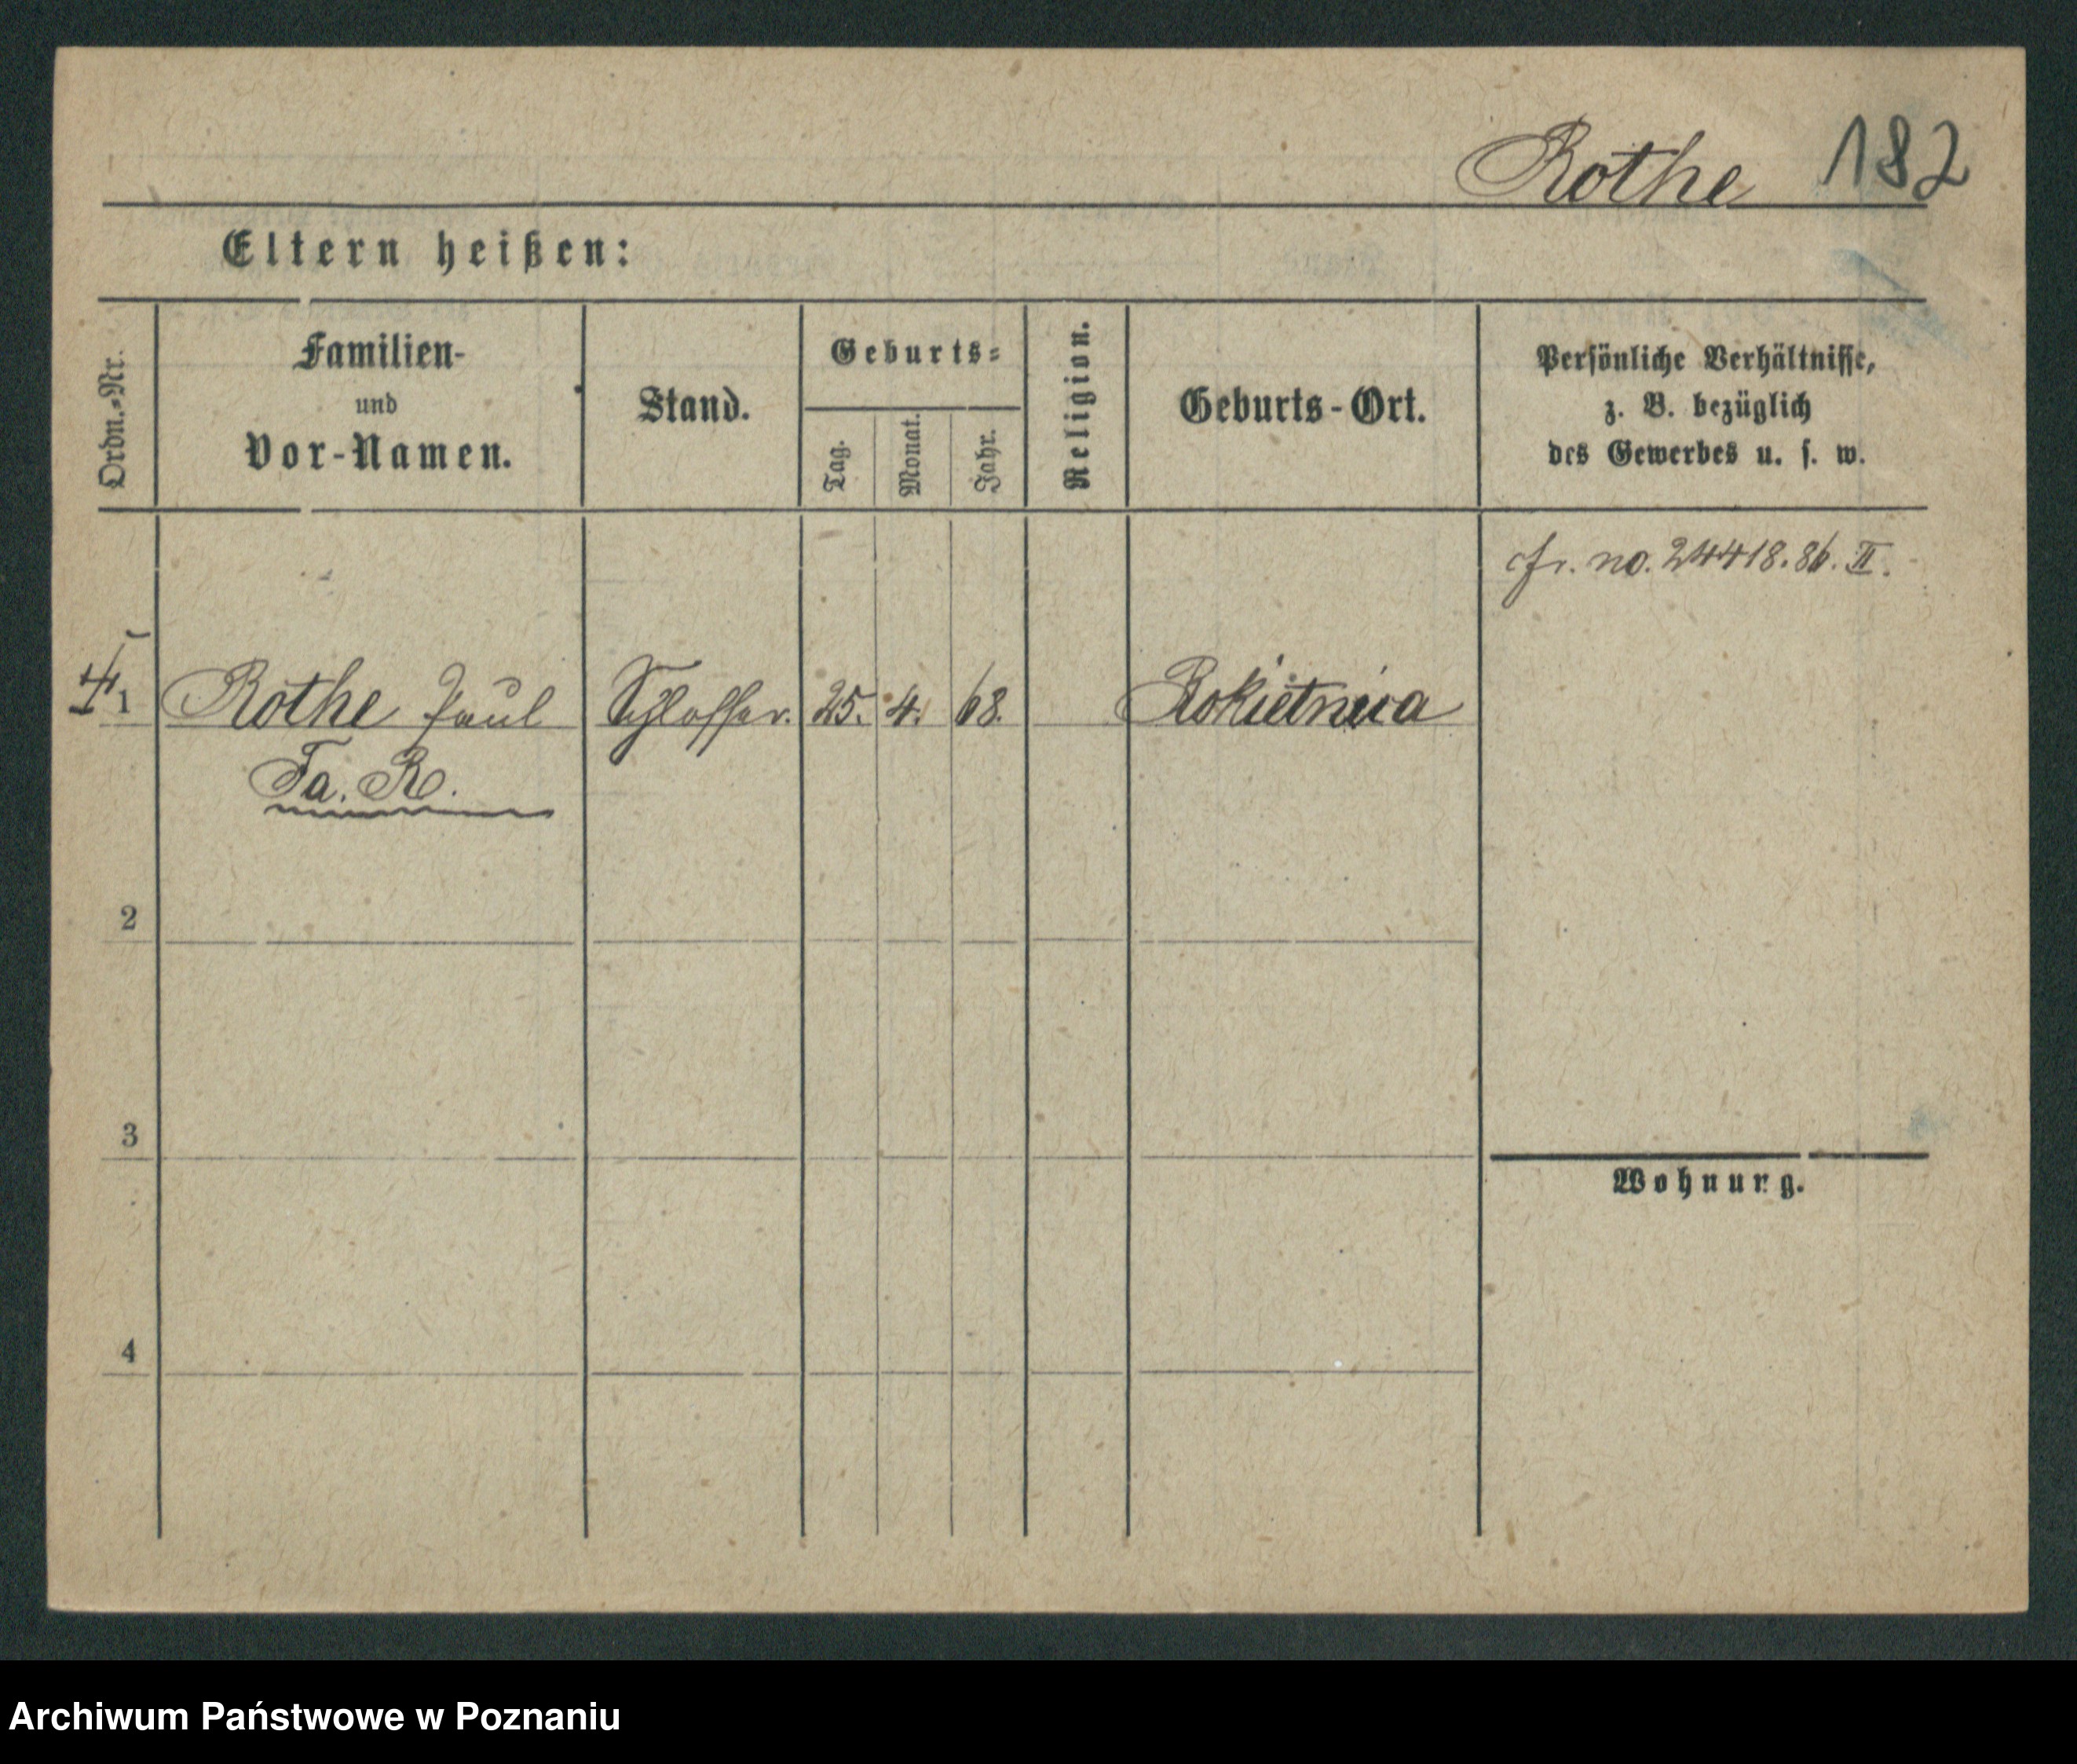 Rothe 182
Eltern heißen:
Ordn.-Nr.
Familien-
und
Vor-Namen.
Stand.
Geburts-
Tag.
Monat.
Jahr.
Religion.
Geburts-Ort.
Persönliche Verhältnisse,
z. B. bezüglich
des Gewerbes u. s. w.
cfr. no. 24418.86. II.
1 Rothe Paul Schlosser. 25. 4. 68. Rokietnica
Fa. R.
2
3
Wohnung.
4
Archiwum Państwowe w Poznaniu